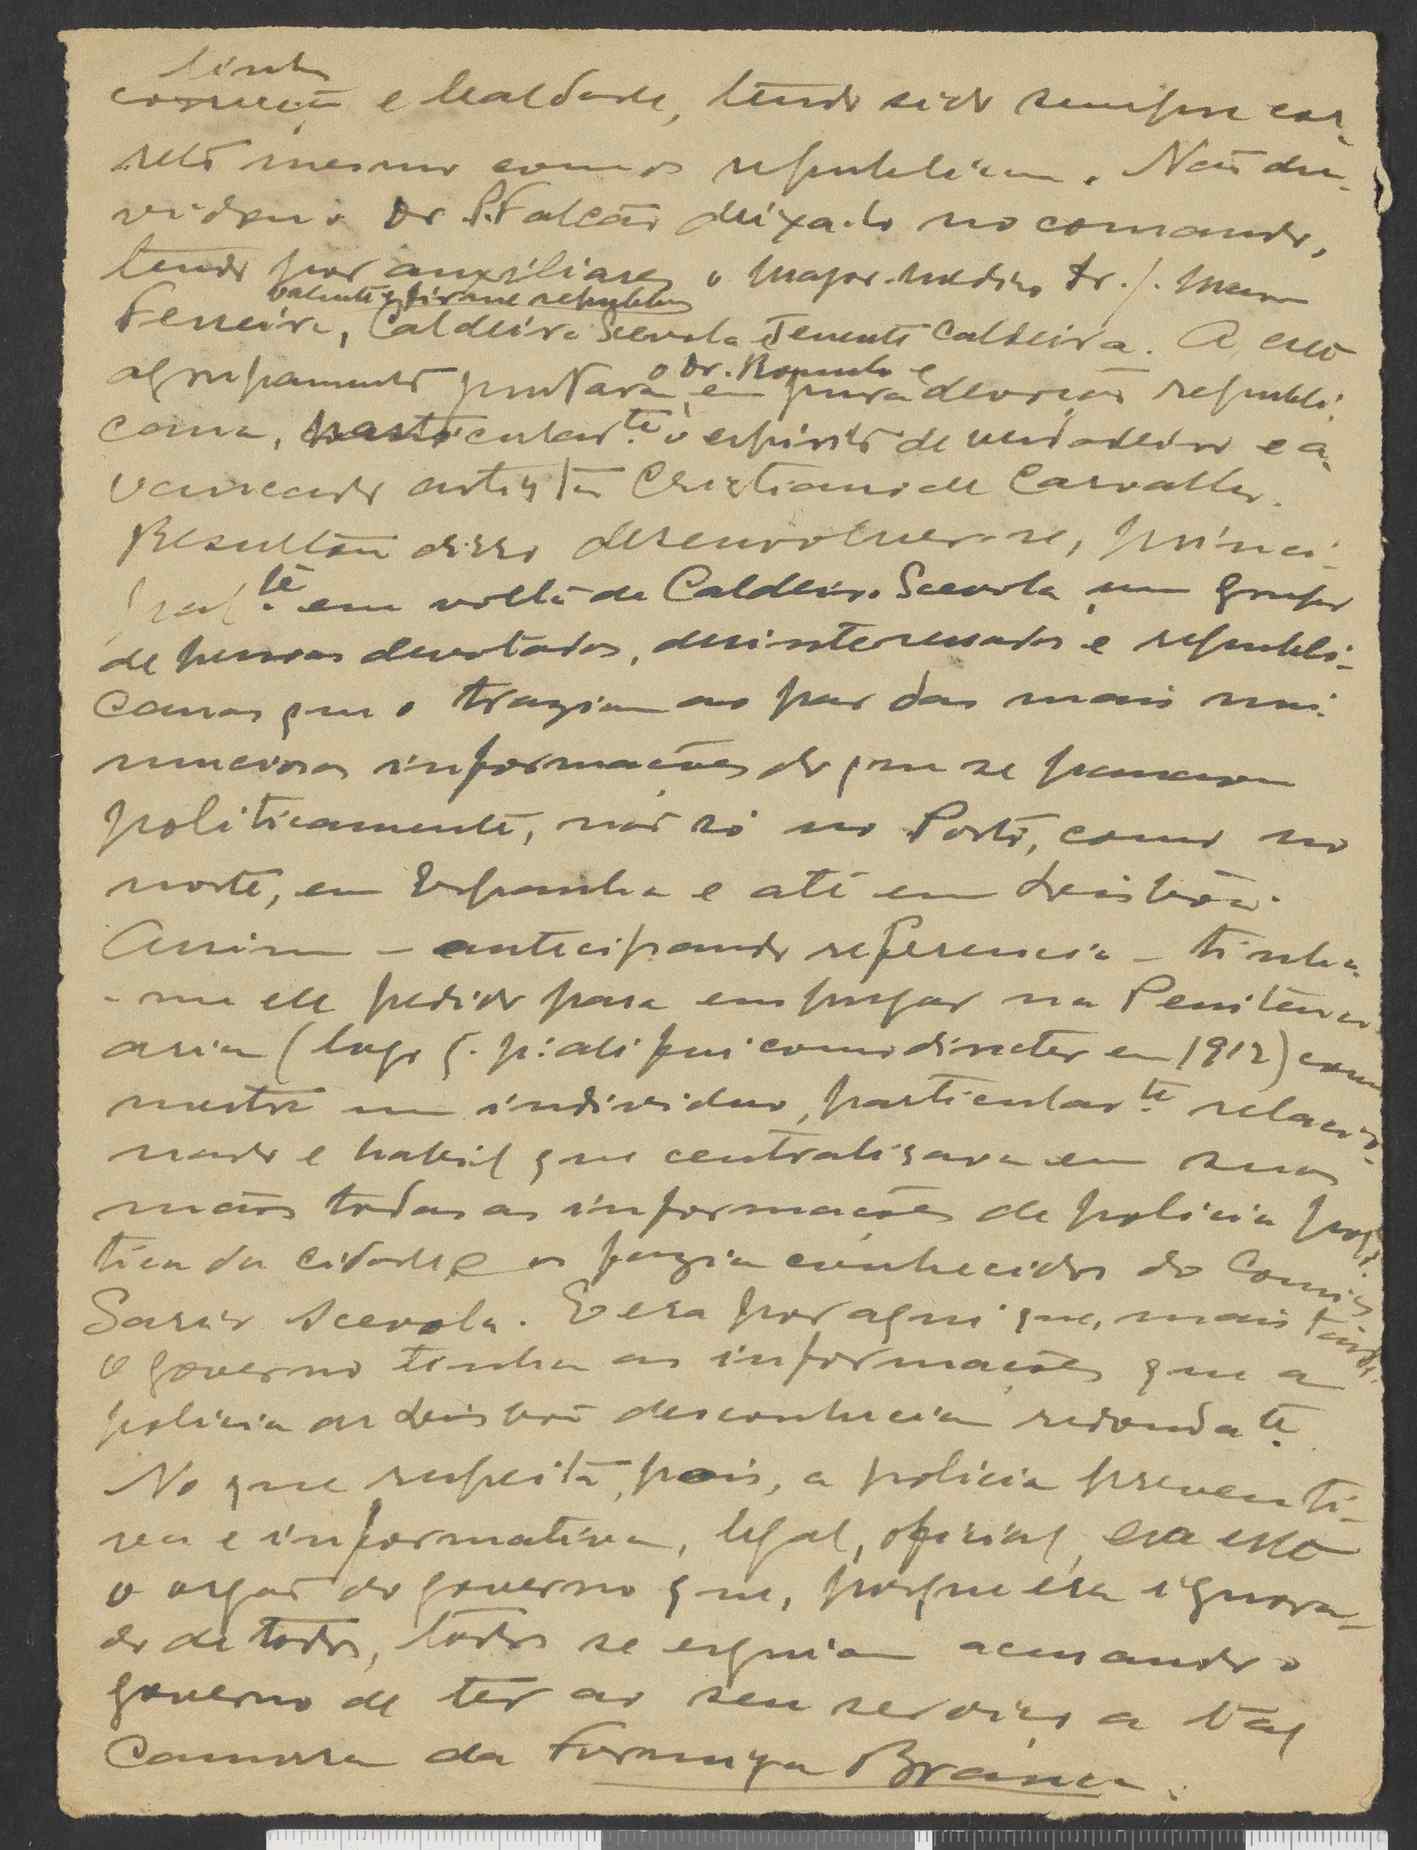 linha
correcção e lealdade, tendo sido sempre cor-
reto mesmo com os republicanos. Não du-
vidou o Dr P. Falcão deixa-lo no comando,
tendo por auxiliares o major-medico Dr. J.
valente e firme republicano
Ferreira, Caldeira Scevola e Tenente Caldeira. A este
o Dr. Romulo e
agrupamento juntava em pura devoção republi-
cana, particularte o espirito de verdadeiro e a-
vançado artista Cristiano de Carvalho.
Resultou disso desenvolver-se, princi-
palte em volta de Caldeira Scevola um grupo
de pessoas devotadas, desinteressadas e republi-
canas que o traziam ao par das mais mi-
nuciosas informações do que se passava
politicamente, não só no Porto, como no
norte, em Espanha e até em Lisboa.
Assim - antecipando referencia - tinha-
-me ele pedido para empregar na Penitenci-
aria (logo q. p.a ali fui como director em 1912) como
mestre um individuo, particularte relacio-
nado e habil que centralisava em suas
mãos todas as informações de policia poli-
tica da cidade e as fazia conhecidas do Comis-
Sario Scevola. E era por aqui que, mais tarde,
o governo tinha as informações que a
policia de Lisboa desconhecia redondate.
No que respeita, pois, a policia preventi-
va e informativa, legal, oficial, era este
o orgão do governo que, porque era ignora-
do de todos, todos se erguiam acusando o
governo de ter ao seu serviço a tal
Camorra da Formiga Branca.